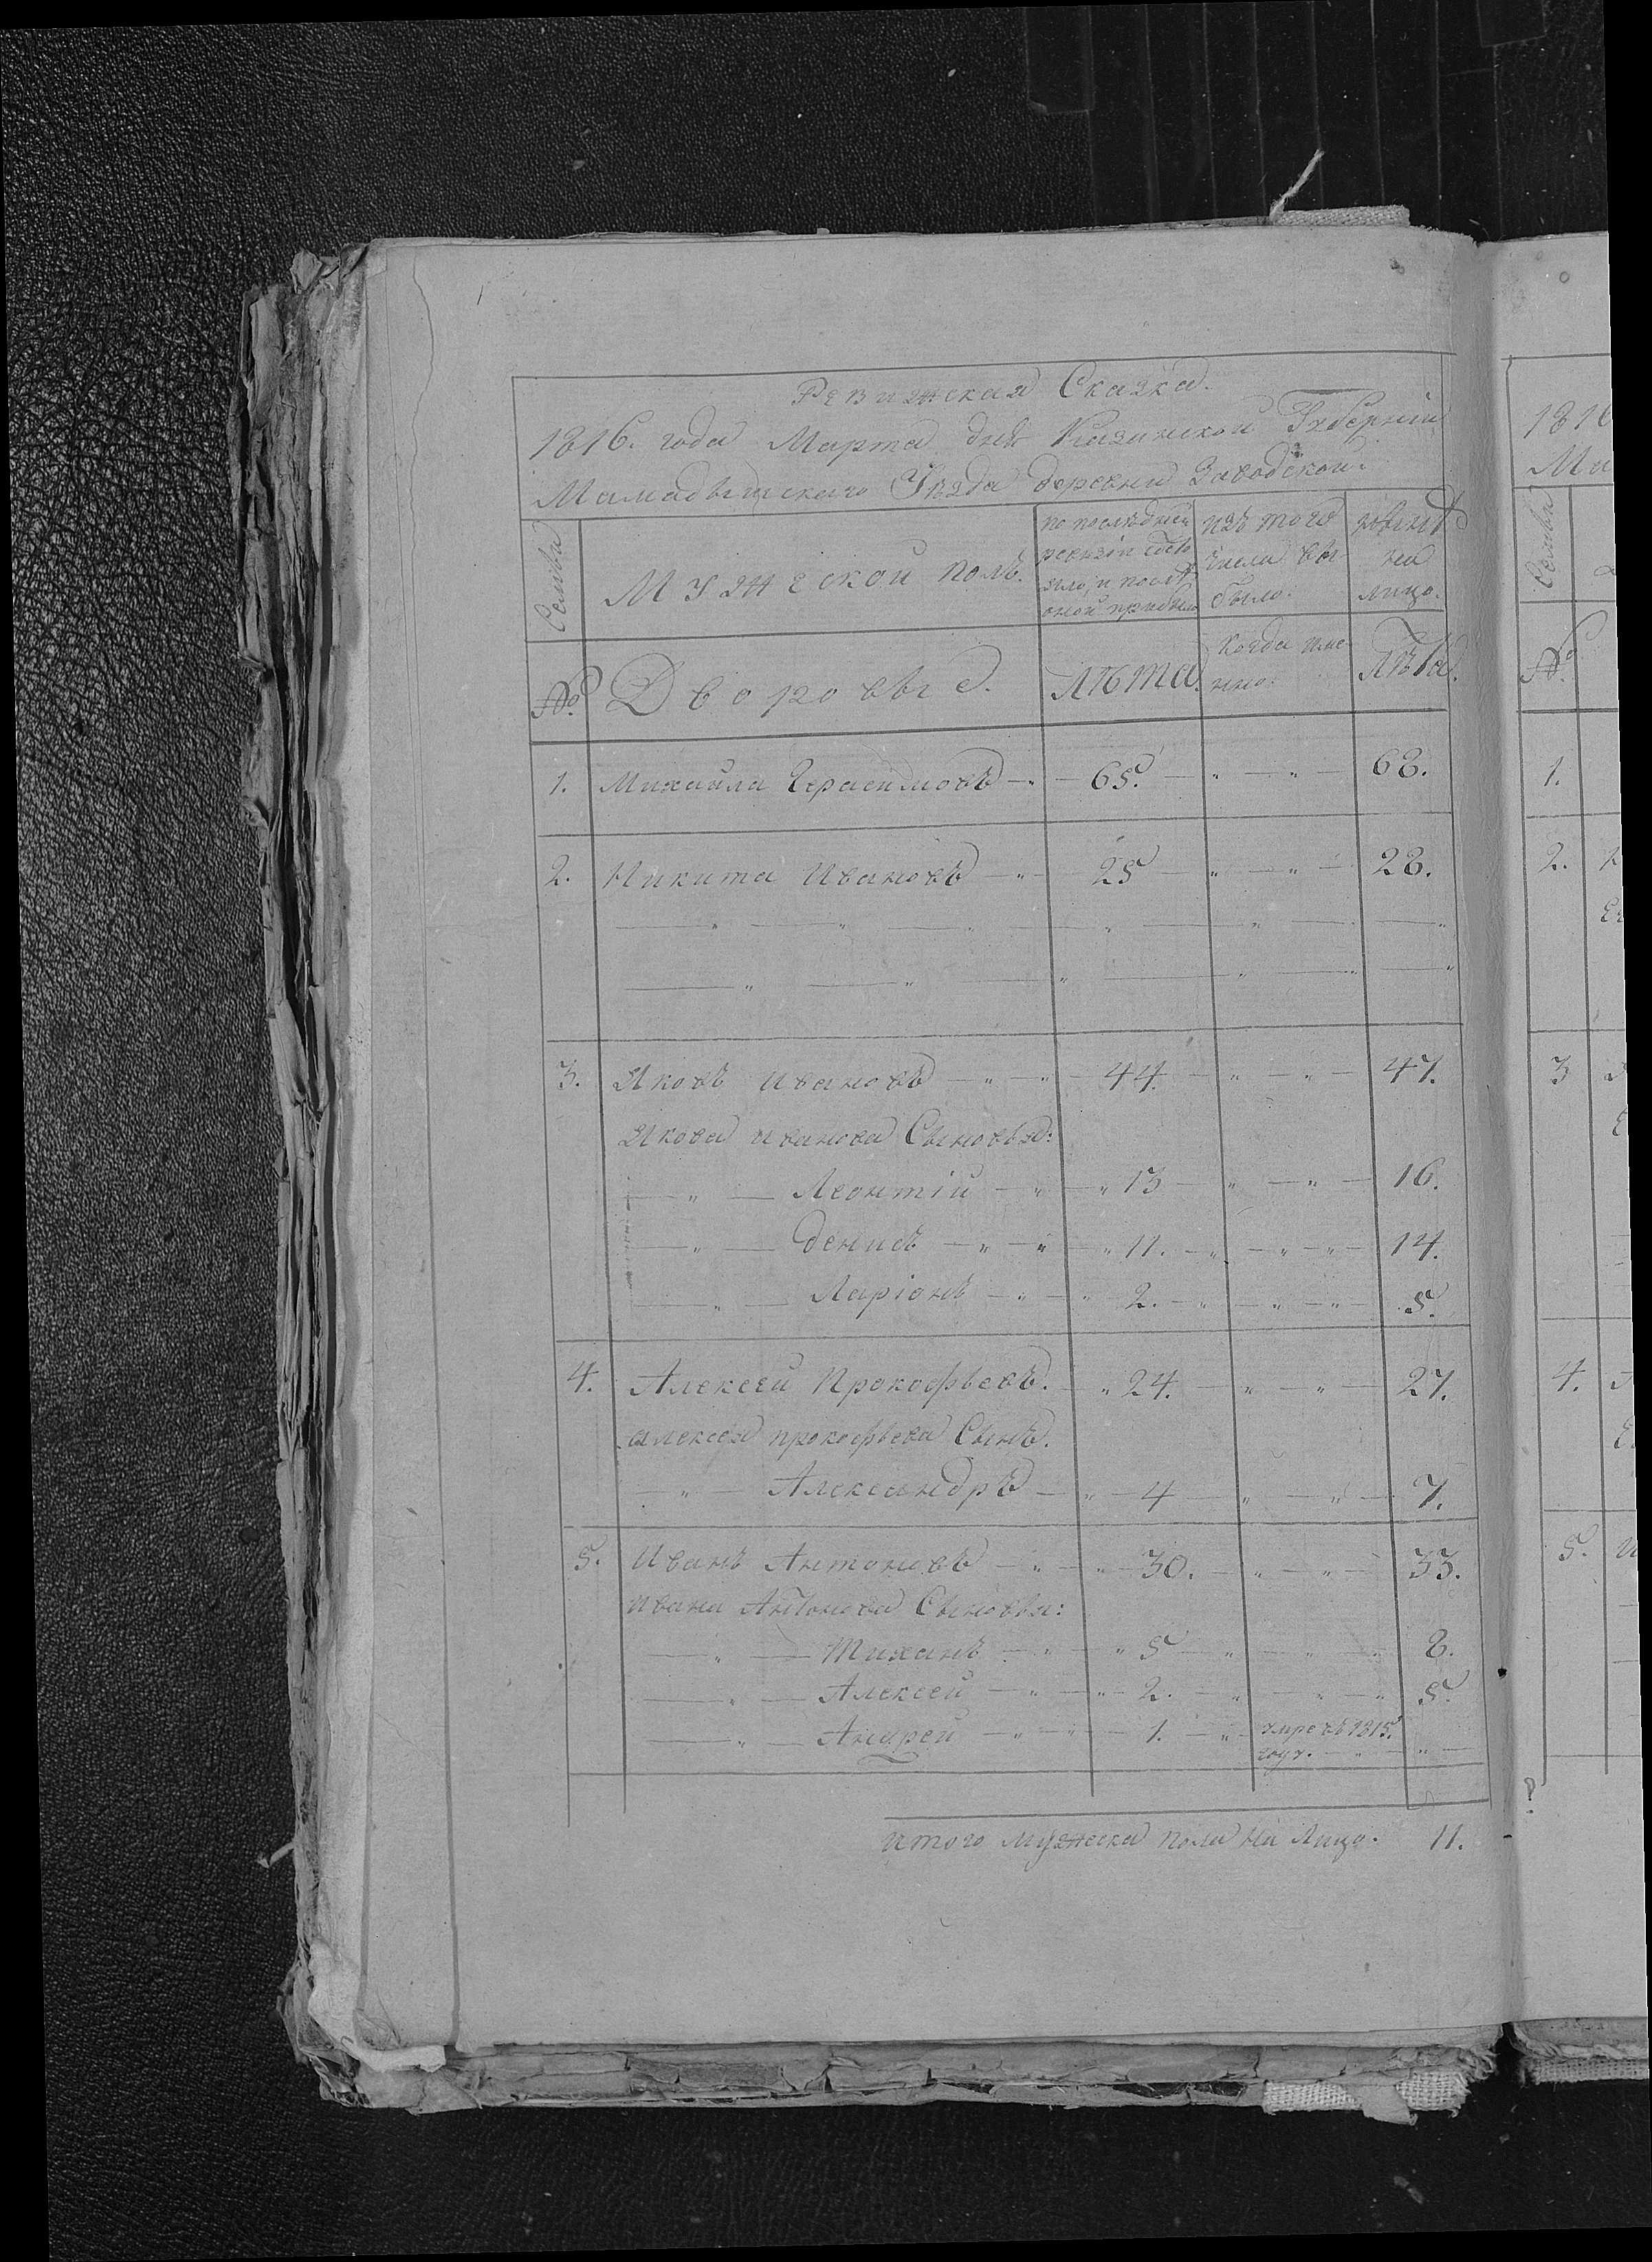 Ревижская Сказка.
1816. года Марта дня Казанской Губерніи
Мамадышскаго Уѣзда деревни Заводской.
Семьи
Мужеской полъ.
по послѣдней
ревизіи состо
яло, и послѣ
оной прибыло
изъ того
числа вы
было.
нынѣ
на
лицо.
№. Дворовыя. Лѣта. Когда име
нно. Лѣта.
1. Михайла Герасимовъ — 65. — " — " — 68.
2. Никита Ивановъ — " — 25 — " — " — 28.
3. Яковъ ивановъ — " — " — 44. — " — " — 47.
Якова иванова Сыновья:
— " — Леонтій — " — " 13 — " — " — 16.
— " — денисъ — " — " — " 11. — " — " — " — 14.
— " — Ларіонъ — " — " 2. — " — " — " — 5.
4. Алексей Прокофьевъ. — " 24. — " — " — 27.
алексея прокофьева Сынъ.
— " — Александръ — " — 4 — " — " — 7.
5. Иванъ Антоновъ — " — " — 30. — " — " — 33.
ивана Антонова Сыновья:
— " — Тиханъ — " — " 5 — " — " — " 8.
— " — Алексей — " — " 2. — " — " — " 5.
— " — Андрей — " — " — 1. — " — умре въ 1815.
году. — " — " —
итого мужеска пола на Лицо. 11.
1816
Ма
Семьи
№.
1.
2.
3
4.
5. И